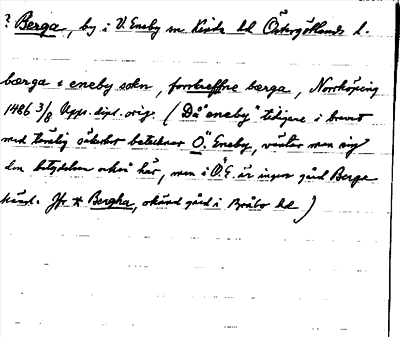 ? Berga, by i V. Eneby sn Kinds hd Östergötlands l.
bærga i eneby sokn, forstreffne bærga, Norrköping
1486 3/8 Upps. dipl. orig. (Då "eneby" tidigare i brevet
med tämlig säkerhet betecknar Ö. Eneby, väntar man sig
den betydelsen också här, men i Ö. E. är ingen gård Berga
känd. Jfr * Bergha, okänd gård i Bråbo hd )